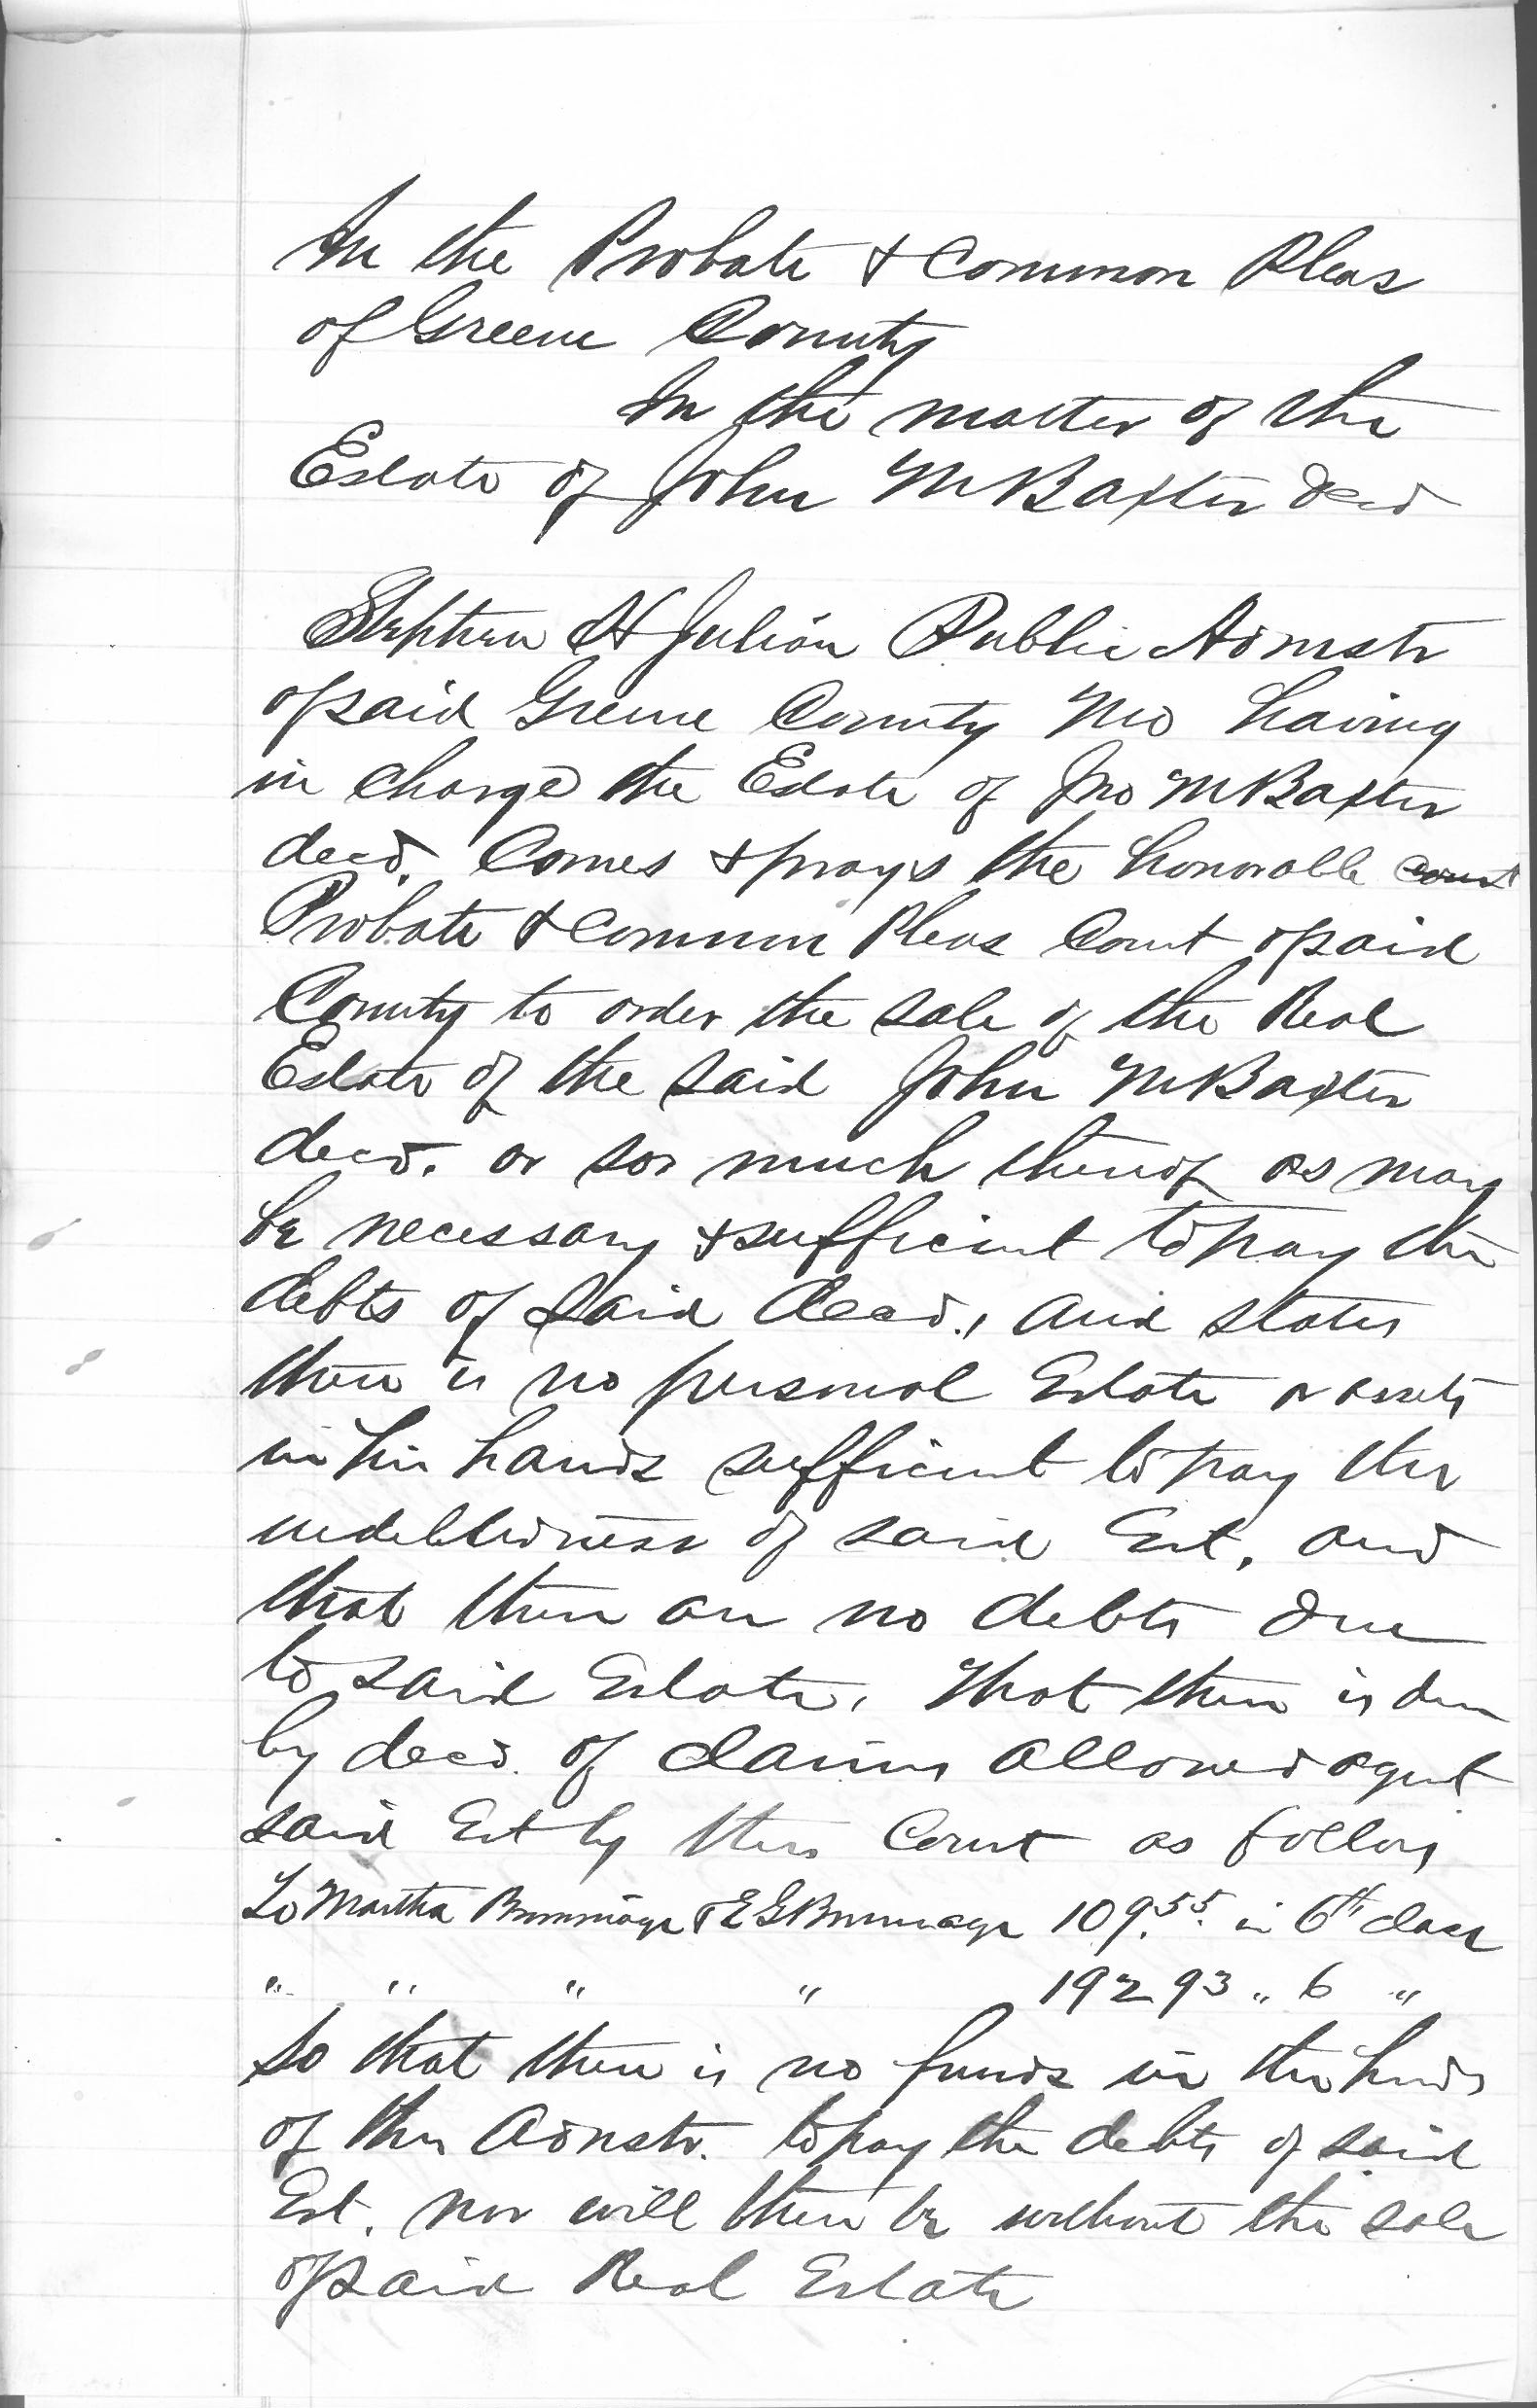 In the Probate & Common Pleas
of Greene County
In the matter of the
Estate of John M Baxter decd
Stephen H Julian Public Admstr
of said Greene County Mo having
in charge the Estate of Jno M Baxter
decd. Comes & prays the honorable court
Probate & Common Pleas Court of said
County to order the sale of the Real
Estate of the said John M Baxter
decd. or so much thereof as may
be necessary & sufficient to pay the
debts of said decd., and states
there is no personal Estate or assets
in his hands sufficient to pay the
indebtedness of said Est. and
that there are no debts due
to said Estate, that there is due
by decd. of claims allowed agnst
said Est by this Court as follows
To Martha Brummage & E G Brummage 109.55. in 6th class
" " " " 192 93 " 6 "
So that there is no funds in the hands
of this Admstr. to pay the debts of said
Est. nor will there be without the sale
of said Real Estate